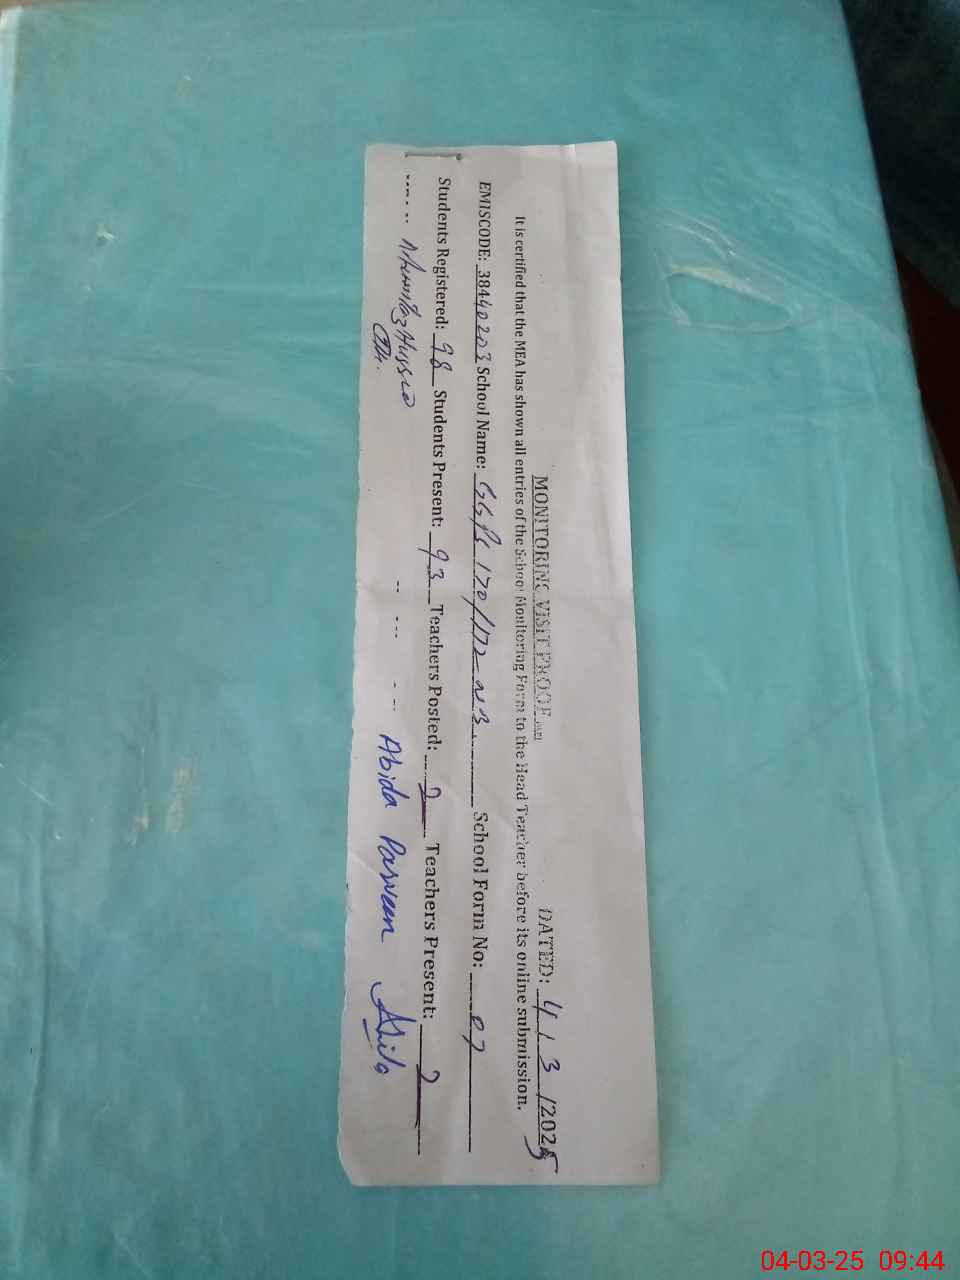 MONITORING VISIT PROOF DATED: 4/3/2025
It is certified that the MEA has shown all entries of the School Monitoring Form to the Head Teacher before its online submission.
EMISCODE: 38440203 School Name: GGPS 170/172-NB School Form No: 07
Students Registered: 98 Students Present: 93 Teachers Posted: 2 Teachers Present: 2
Abida Parveen Abida
04-03-25 09:44